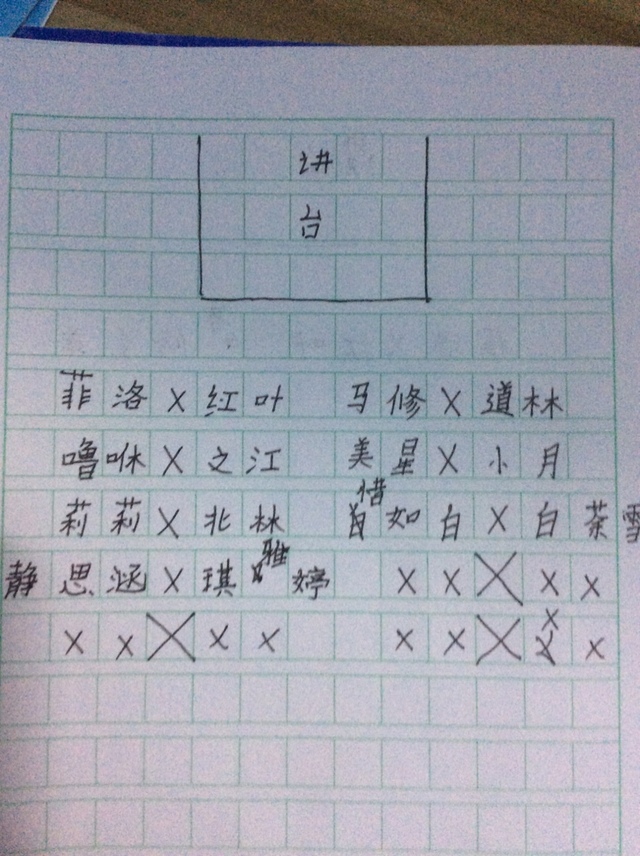 讲
台
菲洛X红叶 马修X道林
噜咻X之江 美星X小月
莉莉X北林 惜如白X白茶雪
静思涵X琪雅婷 XXXXX
XXXXX XXXXXX